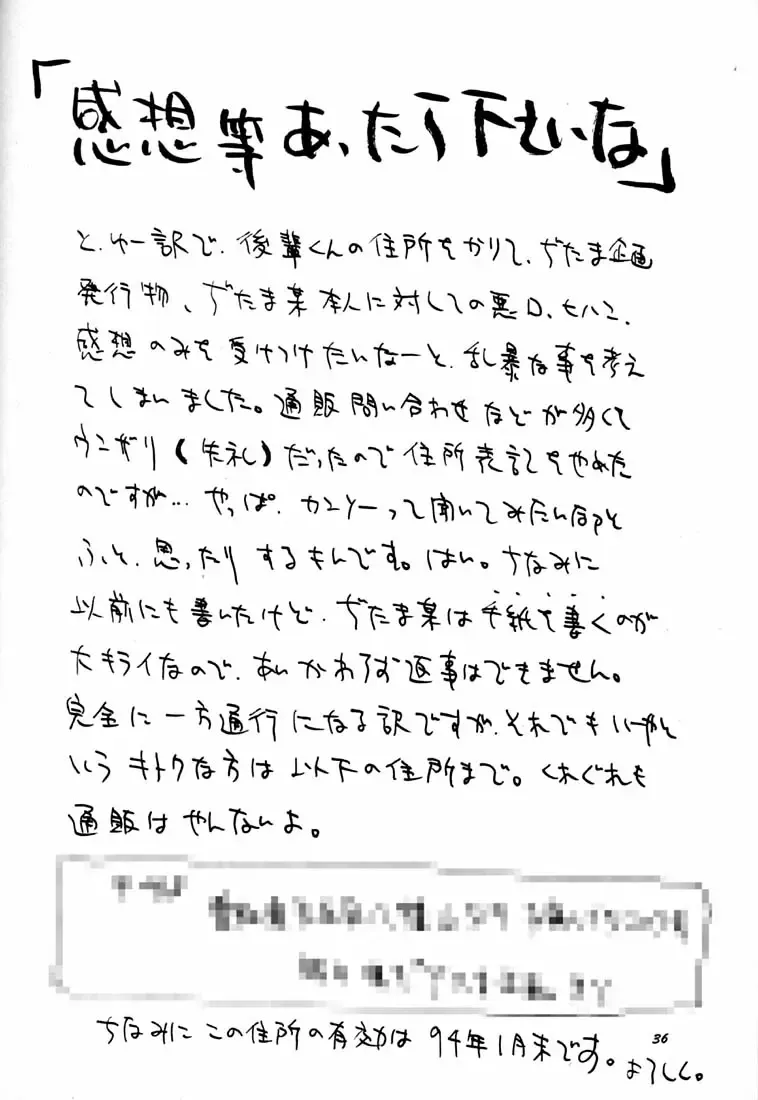 「感想等あったら下せいな」
と、ゆー訳で、後輩くんの住所をかりて、ぢたま企画
発行物、ぢたま某本人に対しての悪口、ヒハン、
感想のみを受けつけたいなーと、乱暴な事を考え
てしまいました。通販問い合わせなどが多くて
ウンザリ(失礼)だったので住所表記をやめた
のですが…やっぱ、カンソーって聞いてみたい
ふと、思ったりするもんです。はい。ちなみに
以前にも書いたけど、ぢたま某は手紙を書くのが
大キライなので、あいかわらず返事はできません。
完全に一方通行になる訳ですが、それでもいーやと
いうキトクな方は以下の住所まで。くれぐれも
通販はやんないよ。
ちなみにこの住所の有効は94年1月末です。
よろしく。
36